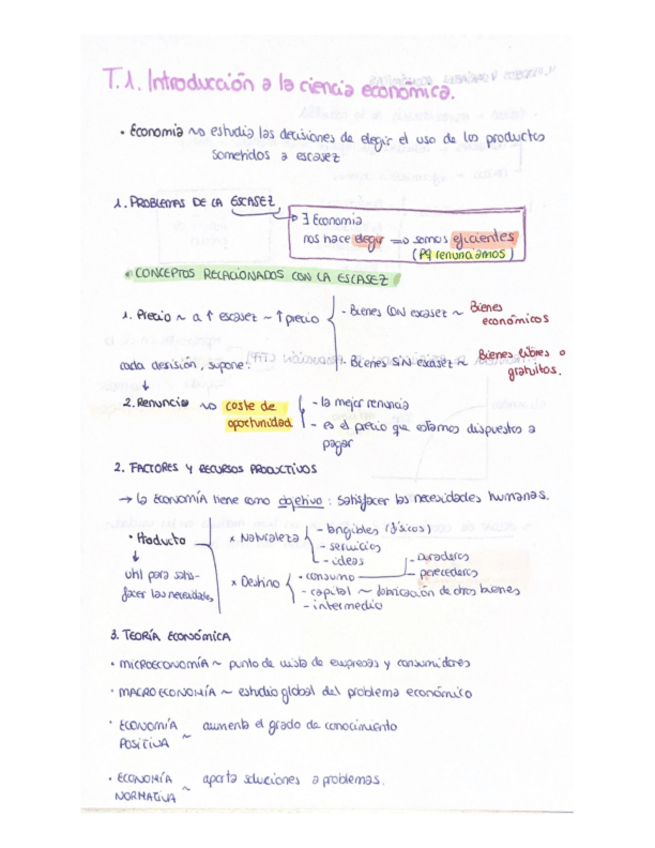 T.1. Introducción a la ciencia económica.
• Economía ~o estudia las decisiones de elegir el uso de los productos
sometidos a escasez
1. PROBLEMAS DE LA ESCASEZ
∃ Economía
nos hace elegir => somos eficientes
(Pq renunciamos)
• CONCEPTOS RELACIONADOS CON LA ESCASEZ
1. Precio ~ a ↑ escasez ~ ↑ precio
- Bienes CON escasez ~ Bienes
económicos
- Bienes SIN escasez ~ Bienes libres o
gratuitos.
cada desisión, supone:
↓
2. Renuncia ~o coste de
oportunidad
- la mejor renuncia
- es el precio que estamos dispuestos a
pagar
2. FACTORES Y RECURSOS PRODUCTIVOS
→ la ECONOMÍA tiene como objetivo: satisfacer las necesidades humanas.
• Producto
↓
útil para satis-
facer las necesidades
x Naturaleza
- tangibles (físicos)
- servicios
- ideas
x Destino
- consumo
- duraderos
- perecederos
- capital ~ fabricación de otros bienes
- intermedio
3. TEORÍA ECONÓMICA
• MICROECONOMÍA ~ punto de vista de empresas y consumidores
• MACROECONOMÍA ~ estudio global del problema económico
• ECONOMÍA
POSITIVA ~ aumenta el grado de conocimiento
• ECONOMÍA
NORMATIVA ~ aporta soluciones a problemas.